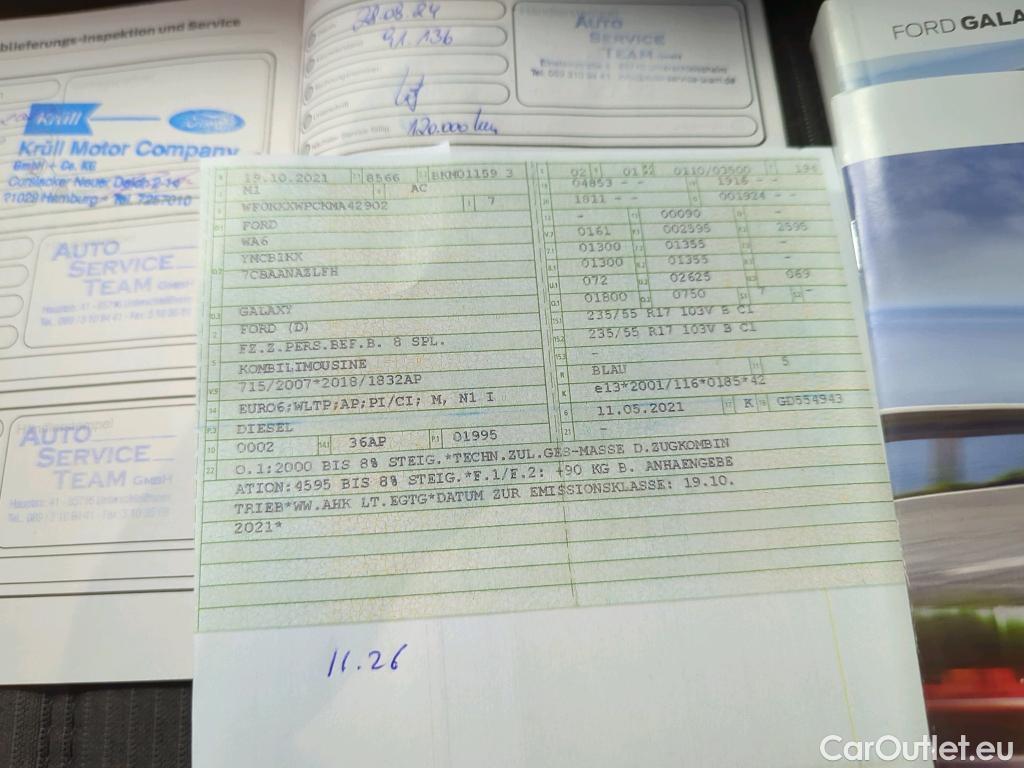 blieferungs-Inspektion und Service
28.08.24
91.136
AUTO
SERVICE
TEAM GmbH
120.000 km
FORD GALA
Krüll
Ford
Krüll Motor Company
GmbH + Co. KG
Curslacker Neuer Deich 2-14
21029 Hamburg - Tel. 7257010
AUTO
SERVICE
TEAM GmbH
AUTO
SERVICE
TEAM GmbH
19.10.2021 8566 BKM01159 3
M1 AC
WF0KXXWPCKMA42902 7
FORD
WA6
YMCB1KX
7CBAANAZLFH
GALAXY
FORD (D)
FZ.Z.PERS.BEF.B. 8 SPL.
KOMBILIMOUSINE
715/2007*2018/1832AP
EURO6;WLTP;AP;PI/CI; M, N1 I
DIESEL
0002 36AP 01995
02 01 0110/03500 194
04853 - - 1916 - -
1811 - - 001924 - -
- 00090 -
0161 002595 2595
01300 01355 -
01300 01355 -
072 02625 069
01800 0750 7 -
235/55 R17 103V B C1
235/55 R17 103V B C1
-
BLAU 5
e13*2001/116*0185*42
11.05.2021 K GD554943
-
O.1:2000 BIS 8% STEIG.*TECHN.ZUL.GES-MASSE D.ZUGKOMBIN
ATION:4595 BIS 8% STEIG.*F.1/F.2: +90 KG B. ANHAENGEBE
TRIEB*WW.AHK LT.EGTG*DATUM ZUR EMISSIONSKLASSE: 19.10.
2021*
11.26
CarOutlet.eu